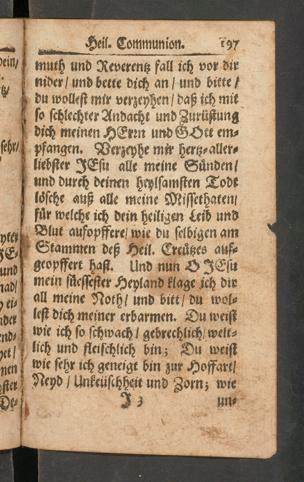 Heil. Communion. 197
muth und Reverentz fall ich vor dir
nider / und bette dich an / und bitte /
du wollest mir verzeyhen / daß ich mit
so schlechter Andacht und Zurüstung
dich meinen HErrn und GOtt em-
pfangen. Verzeyhe mir hertz-aller-
liebster JEsu alle meine Sünden /
und durch deinen heylsamsten Todt
lösche auß alle meine Missethaten /
für welche ich dein heiligen Leib und
Blut aufopffere / wie du selbigen am
Stammen deß Heil. Creützes auf-
geopffert hast. Und nun O JEsu
mein süessester Heyland klage ich dir
all meine Noth / und bitt / du wol-
lest dich meiner erbarmen. Du weist
wie ich so schwach / gebrechlich / welt-
lich und fleischlich bin; Du weist
wie sehr ich geneigt bin zur Hoffart /
Neyd / Unkeüschheit und Zorn; wie
J 3 un-